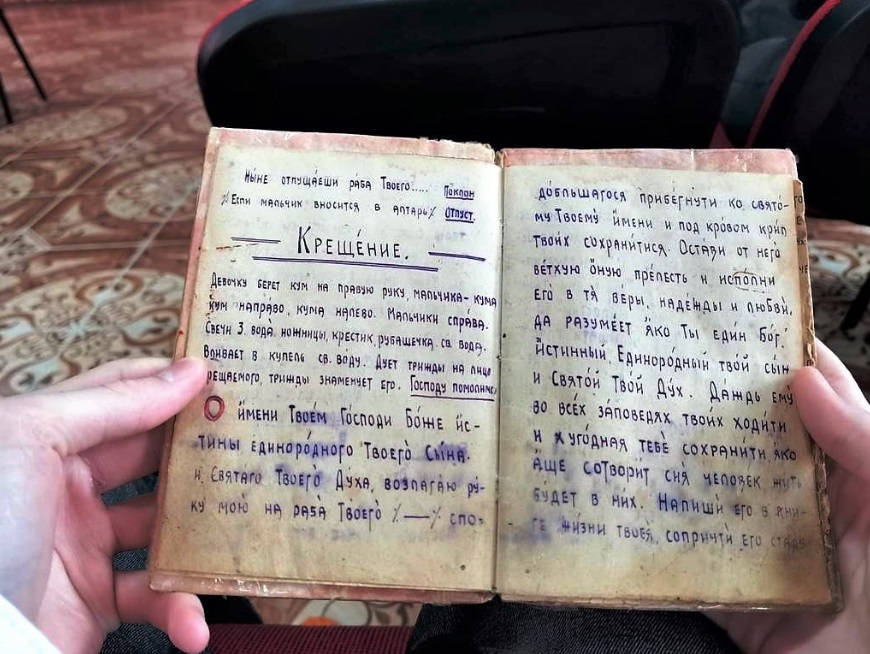 Ны́не отпуща́еши раба̀ Твоего̀..... Поклон
⁒ Если мальчик вносится в алтарь ⁒ Отпуст.
Креще́ние.
Девочку берет кум на правую руку, мальчика – кума
кум направо, кума налево. Мальчики справа.
Свечи 3, вода, ножницы, крестик, рубашечка, св. вода.
Вливает в купель св. воду. Дует трижды на лицо
крещаемого, трижды знаменует его. Господу помолимся
О и́мени Твое́м Го́споди Бо́же и́с-
тины единоро́дного Твоего̀ Сы́на.
и Святаго Твоего̀ Ду́ха, возлага́ю ру́-
ку мою̀ на раба̀ Твоего̀ ⁒ — ⁒ спо-
до́бльшагося прибе́гнути ко свято́-
му Твоему̀ и́мени и под кро́вом крил
твои́х сохрани́тися. Оста́ви от него̀
ве́тхую о́ную пре́лесть и испо́лни
его̀ в тя̀ ве́ры, наде́жды и любви̂,
да разуме́ет я́ко Ты̀ еди́н Бог,
и́стинный, Единоро́дный твой сын
и Свято́й Твой Дух. Да́ждь ему̀
во все́х за́поведях твои́х ходи́ти
и я̀ уго́дная тебѐ сохрани́ти, я́ко
а́ще сотвори́т сия̀ челове́к жить
будет в них. Напиши̂ его в кни-
ге жи́зни твоея̀, сопричти̂ его стаду